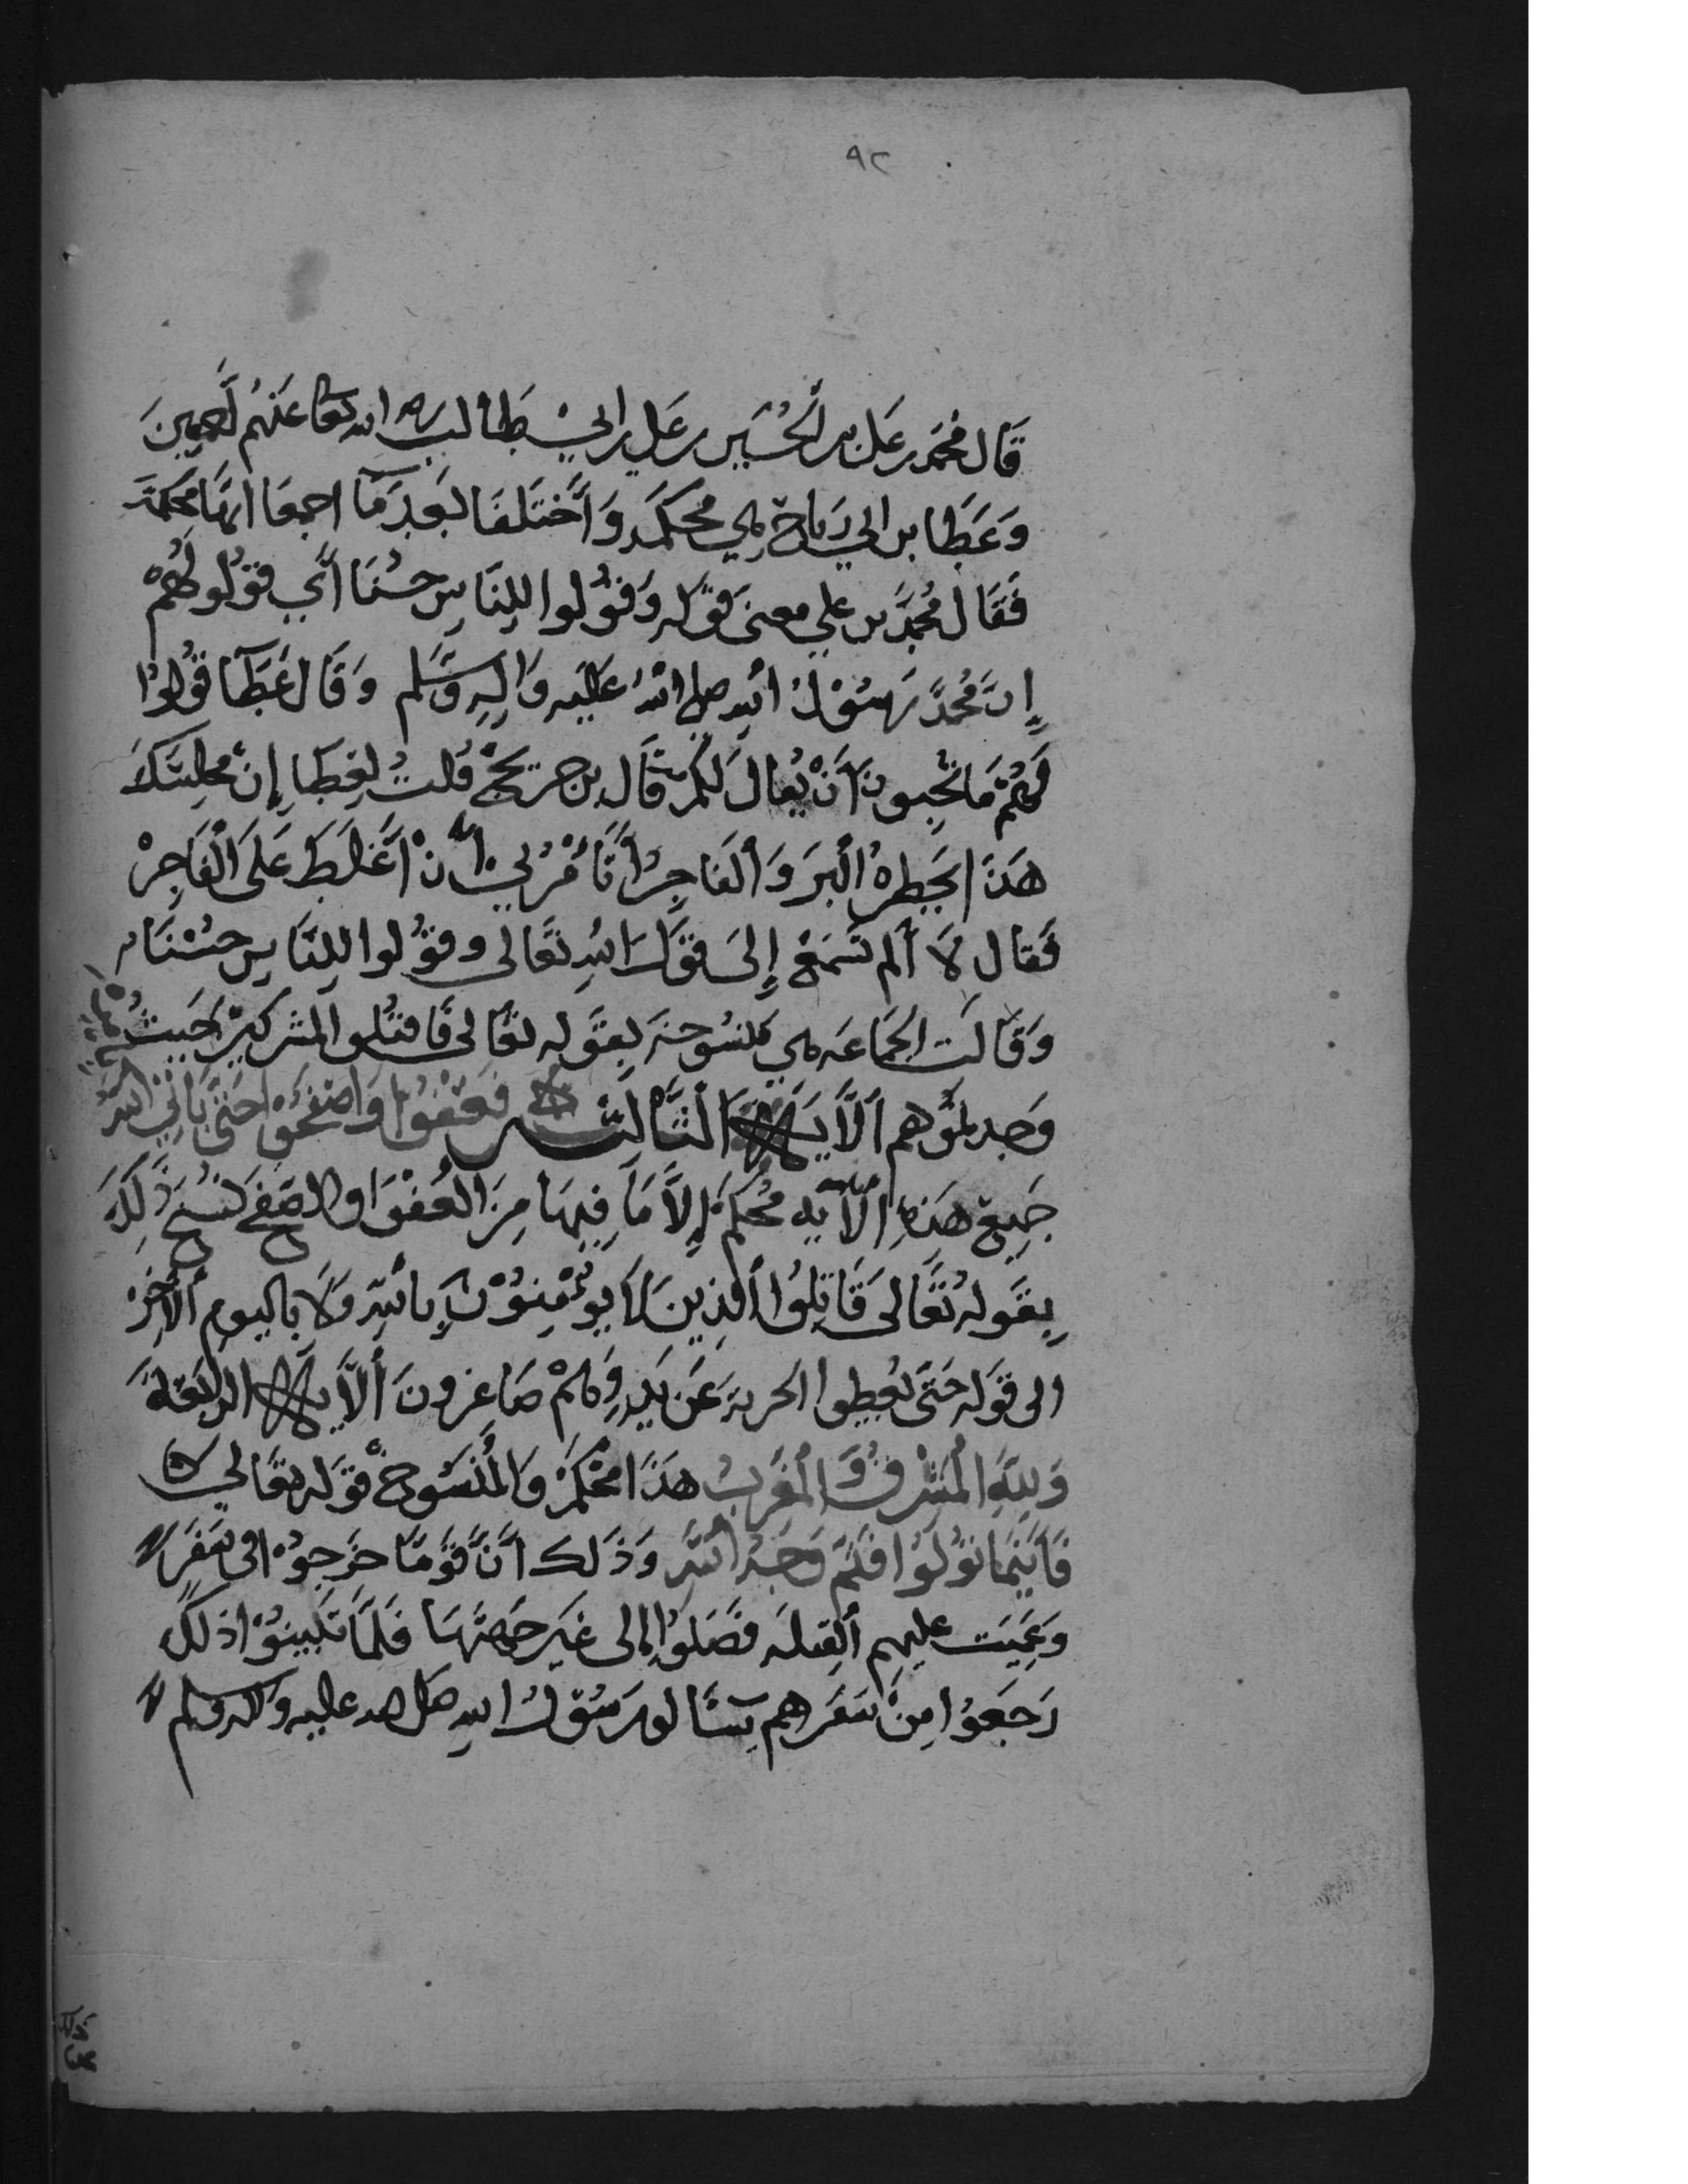 ٩٢
قَال محَمد بن علي بن الْحُسَين بن علي بن ابي طَالب رضي الله تعا عَنهُم أَجمعِينَ
وَعَطَا بن ابي رَبَاح هِي محكمَه وَاَختَلفَا بَعْدِ مَا اجمعَا انهَا مُحكمَة
فَقَال مُحمدَّ بن علي معنى قوَله وَقوُلوا لِلنَاسِ حسُنَا أي قوُلو لَهُم
إنَّ مُحمدَّ رَسُوْلُ اللهِ صلى اللهُ عَليَه وَالِهِ وَسَلم وَقَال عَطَآ قُولوُا
لَهُمْ مَا تحِبونَ أَنْ يُقالَ لَكُم قَال بن جريحَجْ قُلتُ لِعِطَا إنْ مجلِسَكَ
هَذَا يَحضِرهُ اْلبَر وَاْلفَاجِرُ أَتَأمُرُني أَنْ أَغلظَ عَلىَ الْفَاجِرْ
فَقال لاَ ألم تَسَمَعْ إلىَ قوَلَ اللهِ تعَالى وقوُلوا لِلنَاسِ حسُنَا
وَقَالَت الجَمَاعَه هي مَنسُوخَه بِقَوله تعَالى فَاقتلُوا المشركينَ حَيثُ
وَجدتموُهم اْلآيَه الثَالثه فَعفوُا وَاصفحَوُا حَتىَ يَأتيَ اللهُ
جَميِع هَذهِ اْلآيه مُحكمَ إلاَ مَا فِيهَا مِنَ العُفوَا والصَفح نسُخَ ذَلِكَ
بِقوَله تُعَالى قَاتِلوُا اْلذِينَ لَا يؤُمِنوُنَ بِاللهِ وَلَا بِاليومِ اْلآخِرْ
الى قوَله حَتىَ يُعطوا الجزيهَ عَن يَدٍ وَهُمْ صَاغِرونَ اْلآيَه الرابعَة
وَلِلَهِ اْلمَشرِقُ وَالْمغَرِبُ هَذَا مُحكمَ وَالْمنُسَوخ قوَله تعَالي
فَأيَنمَا توُلَوُا فثَمَ وَجهُ اللهِ وَذَلك أنَّ قوَمَا خرَجوُا في سَفَر
وَعَميَت عليهم اْلقِبلَه فصَلوُا إلى غَير جِهتَهَا فَلمَا تَبَينوُا ذلكَ
رَجَعوُا مِنْ سَفَرهم سَألو رَسُوْلُ اللهِ صلى الله عليه وَاله وسلم